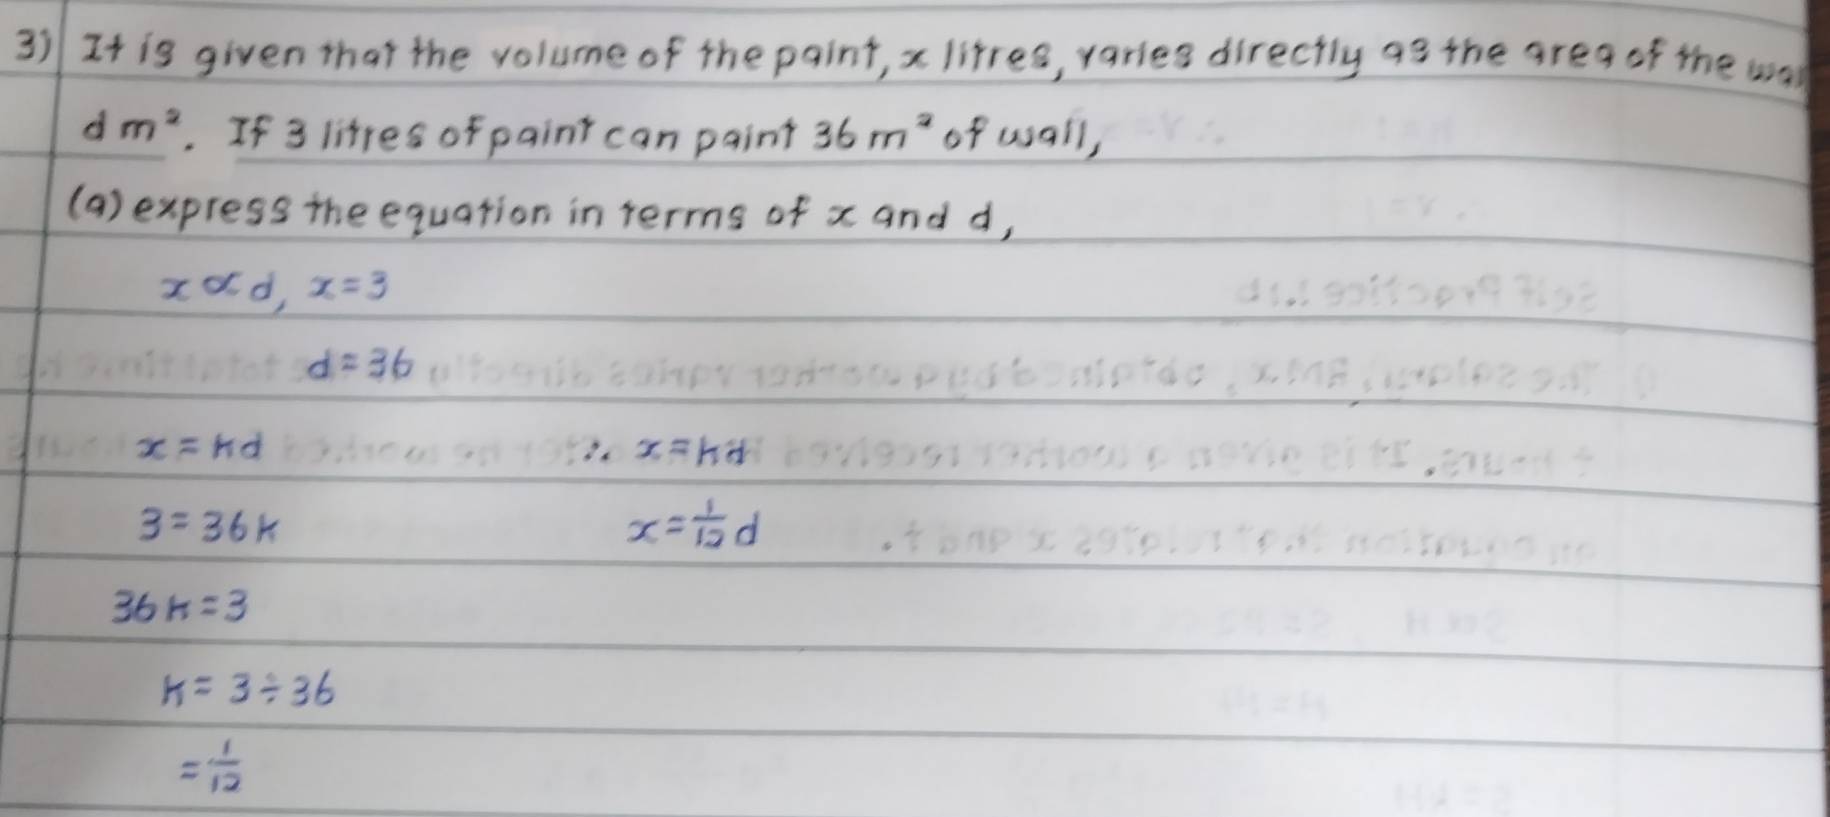 3) It is given that the volume of the paint, x litres, varies directly as the area of the
d m². If 3 litres of paint can paint 36 m² of wall,
(a) express the equation in terms of x and d,
x ∝ d, x = 3
d = 36
x = kd ∴ x = kd
3 = 36k x = 1/12 d
36k = 3
k = 3 ÷ 36
= 1/12